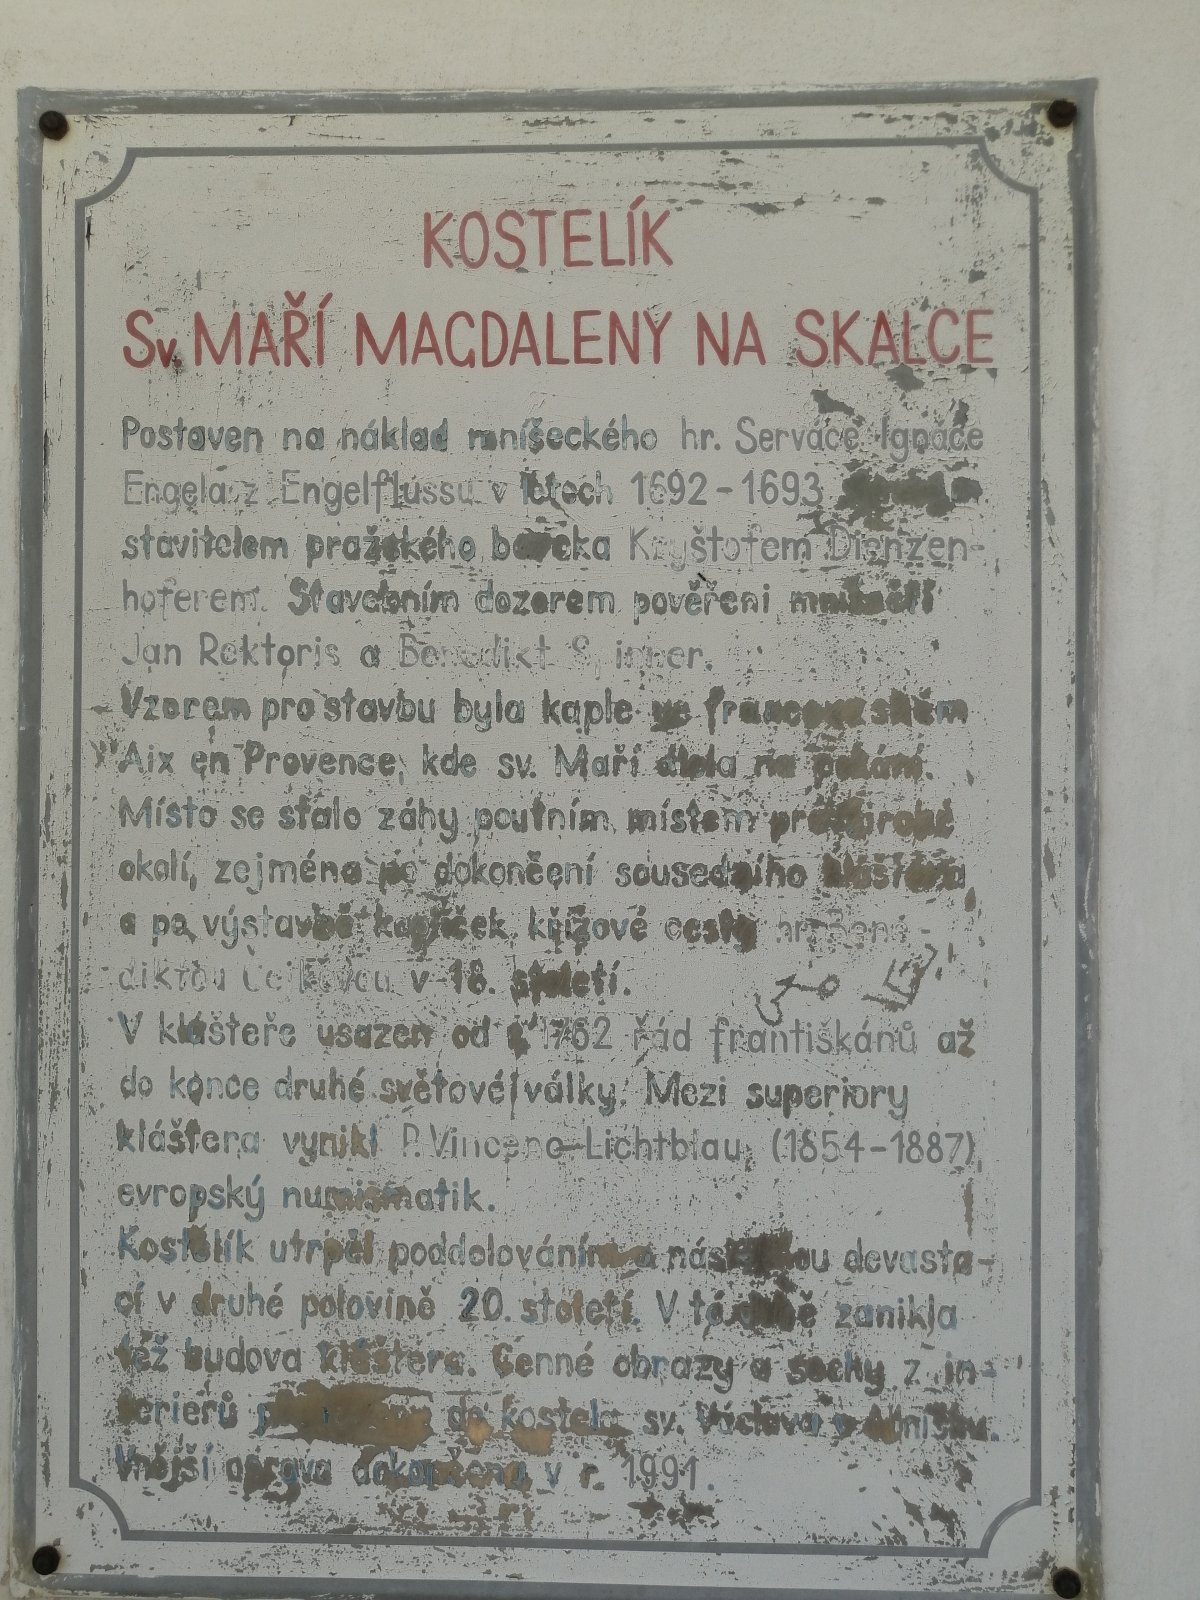 KOSTELÍK
Sv. MAŘÍ MAGDALENY NA SKALCE
Postaven na náklad mníšeckého hr. Serváce Ignáce
Engela z Engelflussu v letech 1692-1693
stavitelem pražského baroka Kryštofem Dienzen-
hoferem. Stavebním dozorem pověřeni mníšečtí
Jan Rektoris a Benedikt
Vzorem pro stavbu byla kaple ve francouzském
Aix en Provence, kde sv. Maří dlela na pokání.
Místo se stalo záhy poutním místem pro široké
okolí, zejména po dokončení sousedního kláštera
a po výstavbě kapliček křížové cesty
v 18. století.
V klášteře usazen od r. 1762 řád františkánů až
do konce druhé světové války. Mezi superiory
kláštera vynikl P. Vincenc Lichtblau, (1854-1887),
evropský numismatik.
Kostelík utrpěl poddolováním a následnou devasta-
cí v druhé polovině 20. století. V té době zanikla
též budova kláštera. Cenné obrazy a sochy z in-
teriérů do kostela sv. Václava v Mníšku.
Vnější oprava dokončena v r. 1991.